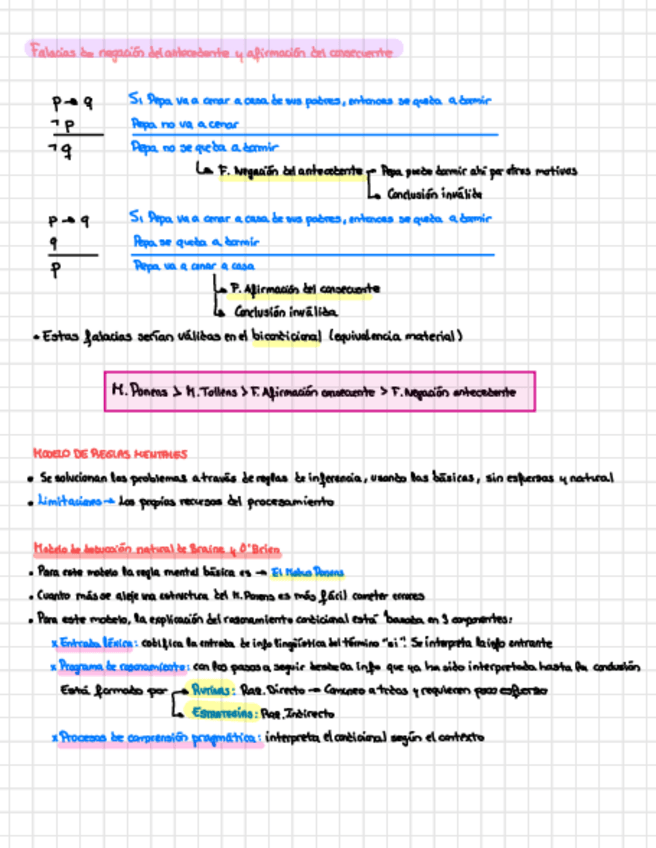 Falacias de negación del antecedente y afirmación del consecuente
p → q Si Pepa va a cenar a casa de sus padres, entonces se queda a dormir
¬ p Pepa no va a cenar
¬ q Pepa no se queda a dormir
F. Negación del antecedente Pepa puede dormir ahí por otros motivos
Conclusión inválida
p → q Si Pepa va a cenar a casa de sus padres, entonces se queda a dormir
q Pepa se queda a dormir
p Pepa va a cenar a casa
F. Afirmación del consecuente
Conclusión inválida
• Estas falacias serían válidas en el bicondicional (equivalencia material)
M. Ponens > M. Tollens > F. Afirmación consecuente > F. Negación antecedente
MODELO DE REGLAS MENTALES
• Se solucionan los problemas a través de reglas de inferencia, usando las básicas, sin esfuerzo y natural
• Limitaciones → Los propios recursos del procesamiento
Modelo de deducción natural de Braine y O'Brien
• Para este modelo la regla mental básica es → El Modus Ponens
• Cuanto más se aleje una estructura del M. Ponens es más fácil cometer errores
• Para este modelo, la explicación del razonamiento condicional está basada en 3 componentes:
x Entrada léxica: codifica la entrada de info lingüística del término "si". Se interpreta la info entrante
x Programa de razonamiento: con los pasos a seguir desde la info que ya ha sido interpretada hasta la conclusión
Está formado por Rutinas: Raz. Directo → Comunes a todos y requieren poco esfuerzo
Estrategias: Raz. Indirecto
x Procesos de comprensión pragmática: interpreta el condicional según el contexto